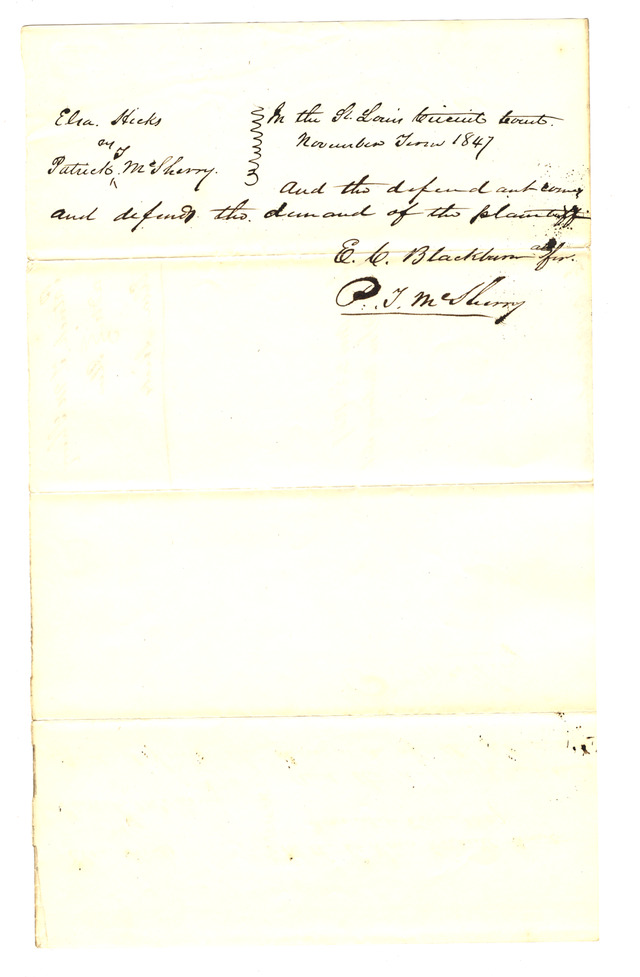 Elsa. Hicks
vs
Patrick T McSherry.
In the St. Louis Circuit Court.
November Term 1847
And the defendant comes
and defends the demand of the plaintiff
E. C. Blackburn atty for.
P. T. McSherry